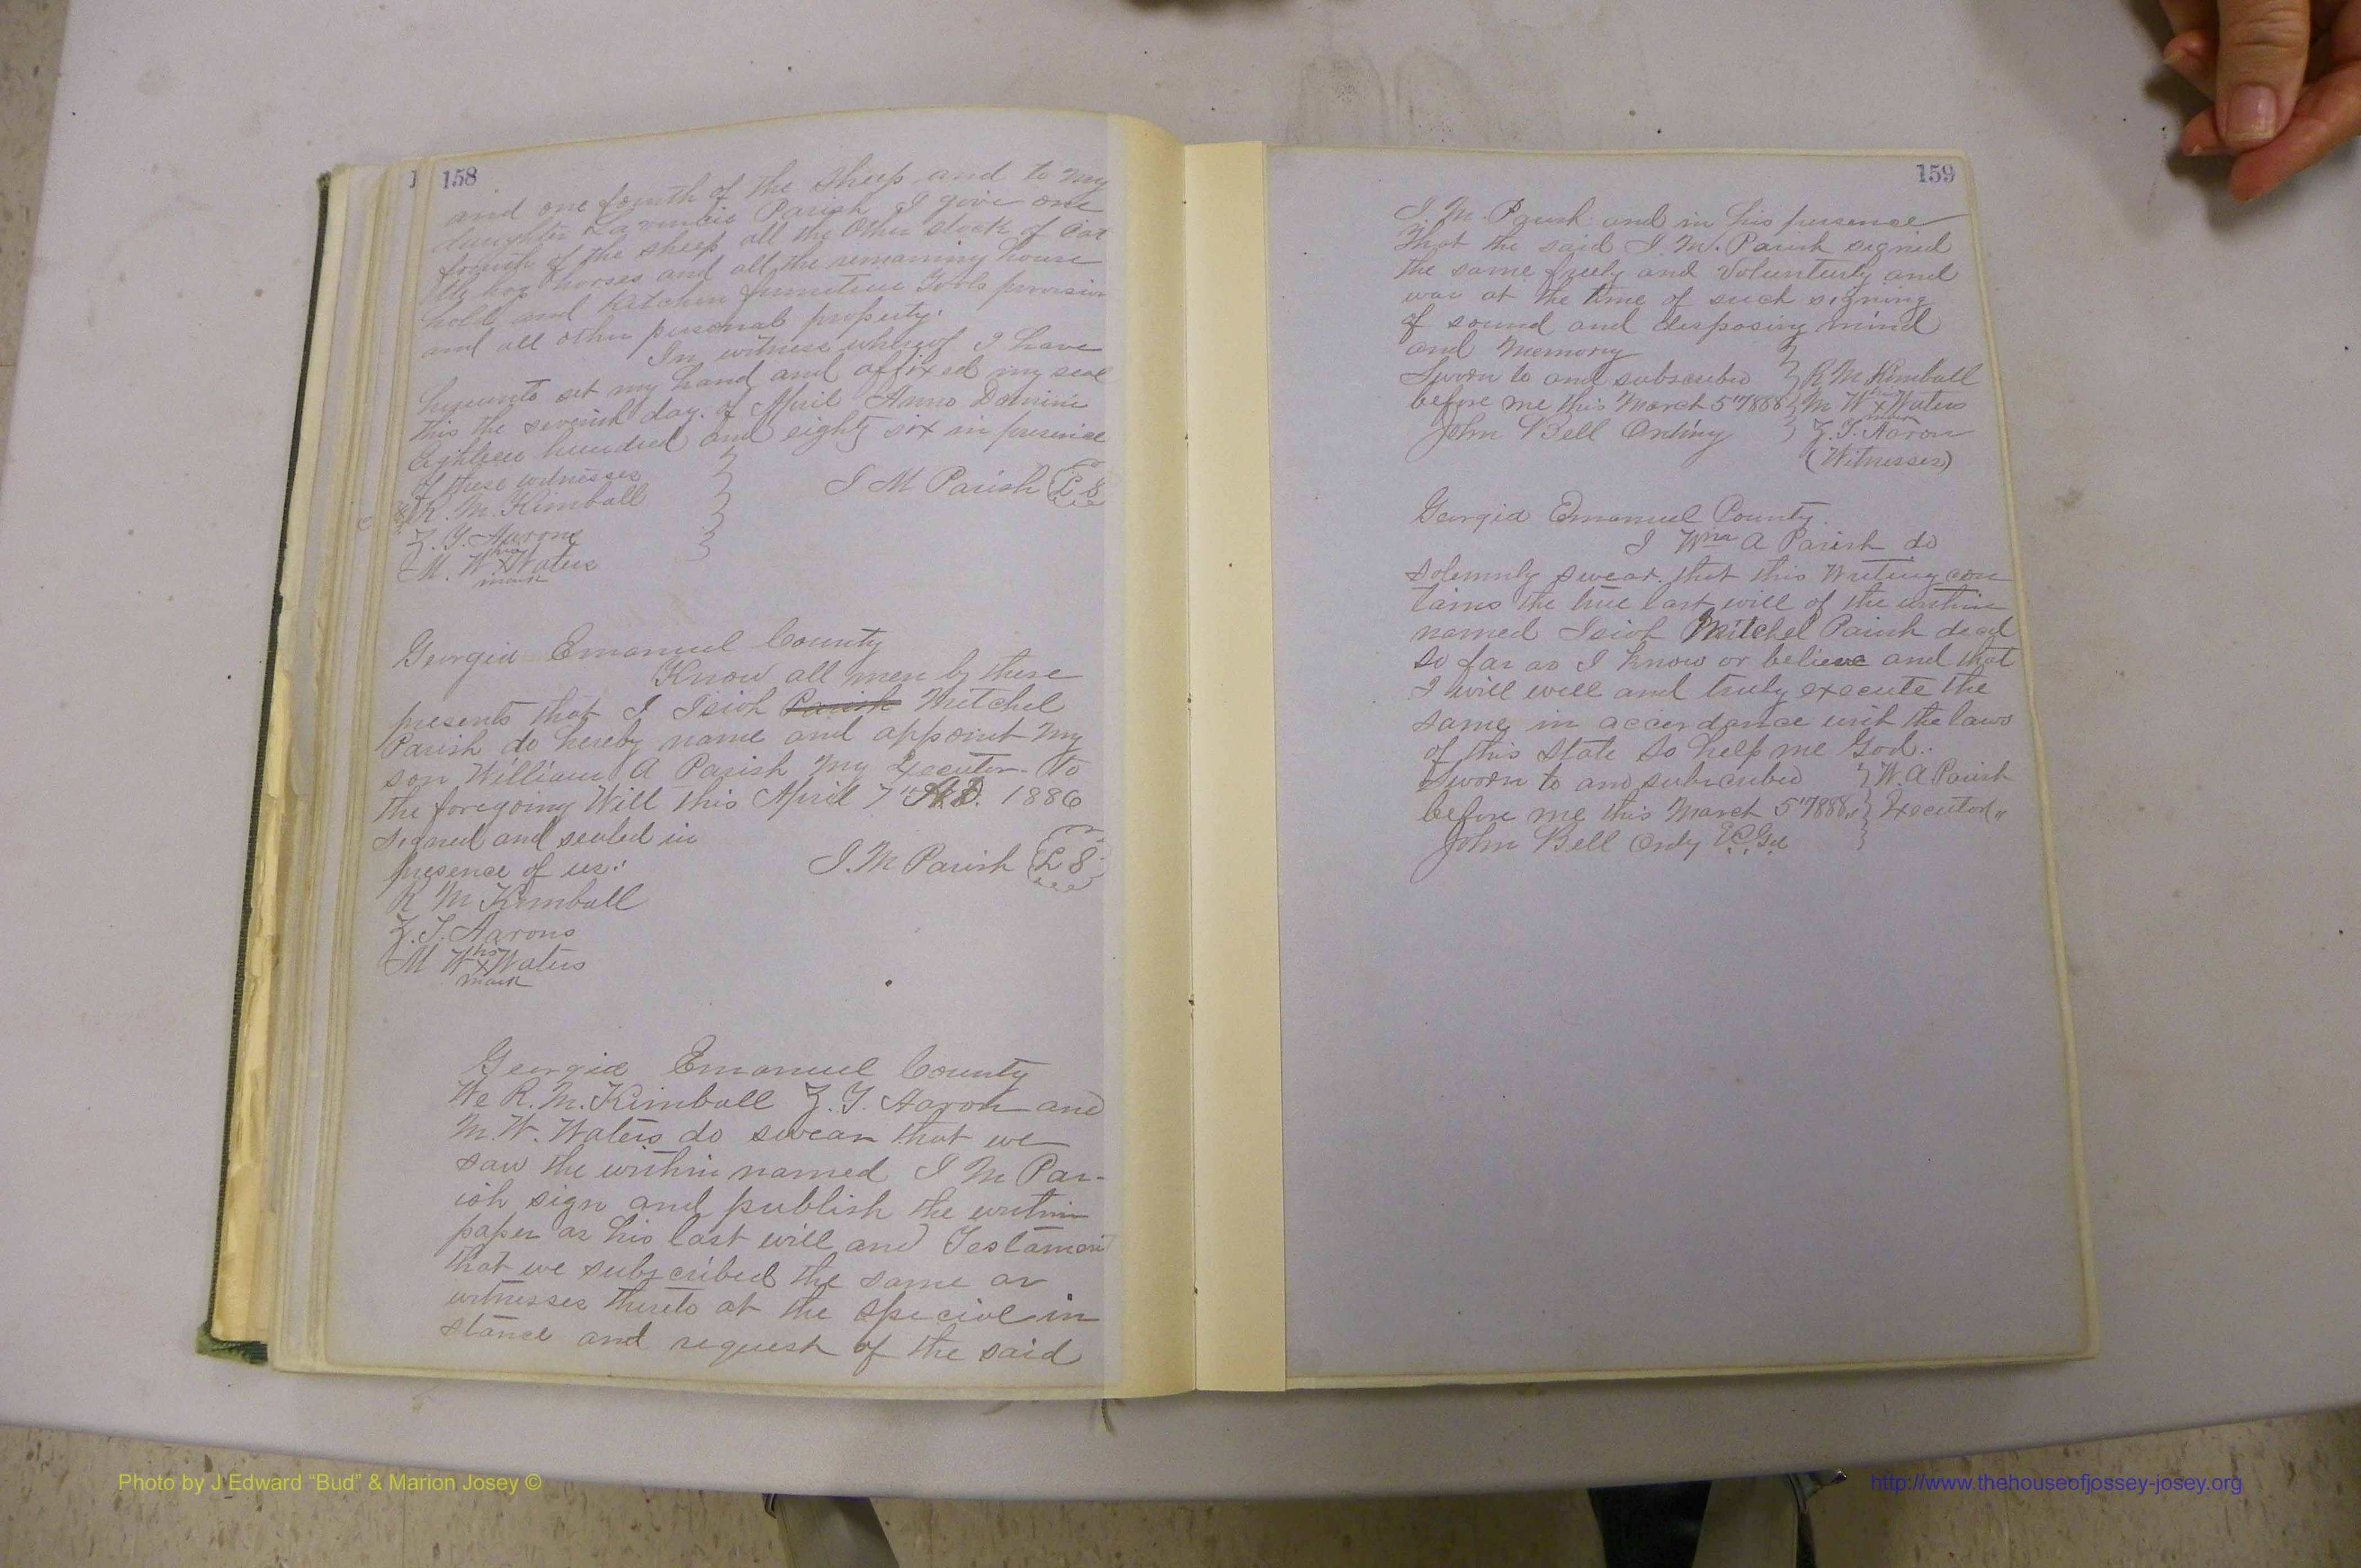 158
and one fourth of the sheep and to my
daughter Parish I give one
fourth of the sheep all the other stock of Cat
tle hog horses and all the remaining house
hold and Kitchen furniture Tools provision
and all other personal property.
In witness whereof I have
hereunto set my hand and affixed my seal
this the seventh day. of April Anno Domini
Eighteen hundred and eighty six in presence
of these witnesses
I M Parish L S
R. M. Kimball
Z. T. Aarons
his
M. W. x Waters
mark
Georgia Emanuel County
Know all men by these
presents that I Isioh Parish Mitchel
Parish do hereby name and appoint my
son William A Parish my Executor to
the foregoing Will this April 7" A.D. 1886
signed and sealed in
presence of us:
I. M Parish L S
R M Kimball
Z. T. Aarons
his
M W x Waters
mark
Georgia Emanuel County
We R. M. Kimball Z. T. Aaron and
M. W. Waters do swear that we
saw the within named I M Par-
ish sign and publish the within
paper as his last will and Testament
that we subscribed the same as
witnesses thereto at the special in
stance and request of the said
159
I. M. Parish and in his presence
that the said I. M. Parish signed
the same freely and Volunterly and
was at the time of such signing
of sound and desposing mind
and memory
Sworn to and subscribed R M Kimball
before me this March 5" 1888 M W x Waters
John Bell Ordiny Z. T. Aaron
(Witnesses)
Georgia Emanuel County.
I Wm A Parish do
solemnly swear. that this Writing con
tains the true last will of the within
named Isioh Mitchel Parish decd
so far as I know or believe and that
I will well and truly execute the
same in accordance with the laws
of this State so help me God..
Sworn to and subscribed W. A Parish
before me this March 5" 1888,, Executor,,
John Bell Ordy E. C. Ga
Photo by J Edward “Bud” & Marion Josey ©
http://www.thehouseofjossey-josey.org